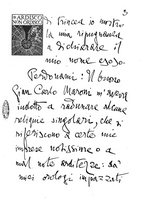 ARDISCO
NON ORDISCO
3
di Fiucca io mostro
la mia ripugnanza
a dichiarare il
mio nome
Perdonami: Il buono
Gian Carlo Maroni m'aveva
indotto a radunare alcune
reliquie singolari, che si
riferiscono a certe mie
imprese notissime o a
mal note arditezze: da'
miei orologi impazziti